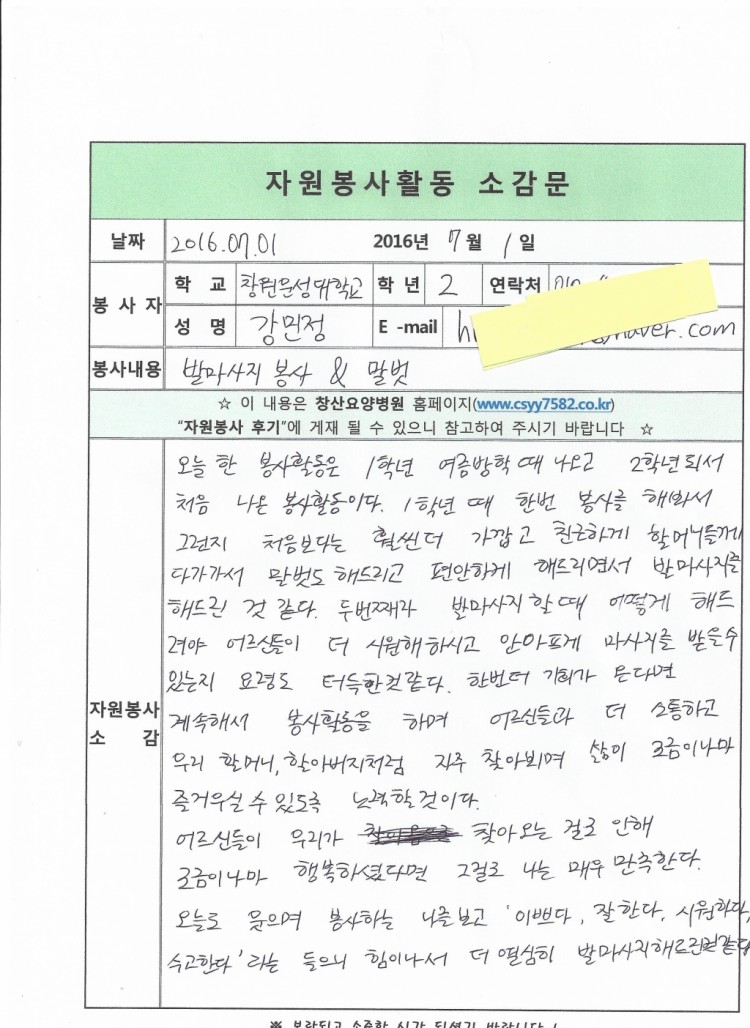 자원봉사활동 소감문
날짜 2016.07.01 2016년 7월 1일
봉사자 학 교 창원문성대학교 학년 2 연락처
성 명 강민정 E-mail naver.com
봉사내용 발마사지 봉사 & 말벗
☆ 이 내용은 창산요양병원 홈페이지(www.csyy7582.co.kr)
"자원봉사 후기"에 게재 될 수 있으니 참고하여 주시기 바랍니다 ☆
자원봉사
소 감
오늘 한 봉사활동은 1학년 여름방학 때 나오고 2학년 되서
처음 나온 봉사활동이다. 1학년 때 한번 봉사를 해와서
그런지 처음보다는 훨씬 더 가깝고 친근하게 할머니들께
다가가서 말벗도 해드리고 편안하게 해드리면서 발마사지를
해드린 것 같다. 두번째라 발마사지 할 때 어떻게 해드
려야 어르신들이 더 시원해 하시고 안아프게 마사지를 받을수
있는지 요령도 터득한것같다. 한번더 기회가 온다면
계속해서 봉사활동을 하며 어르신들과 더 소통하고
우리 할머니, 할아버지처럼 자주 찾아뵈며 삶이 조금이나마
즐거우실 수 있도록 노력할것이다.
어르신들이 우리가 찾아오는 걸로 인해
조금이나마 행복하셨다면 그걸로 나는 매우 만족한다.
오늘도 웃으며 봉사하는 나를 보고 '이쁘다, 잘한다, 시원하다,
수고한다' 라는 들으니 힘이나서 더 열심히 발마사지해드린것같다